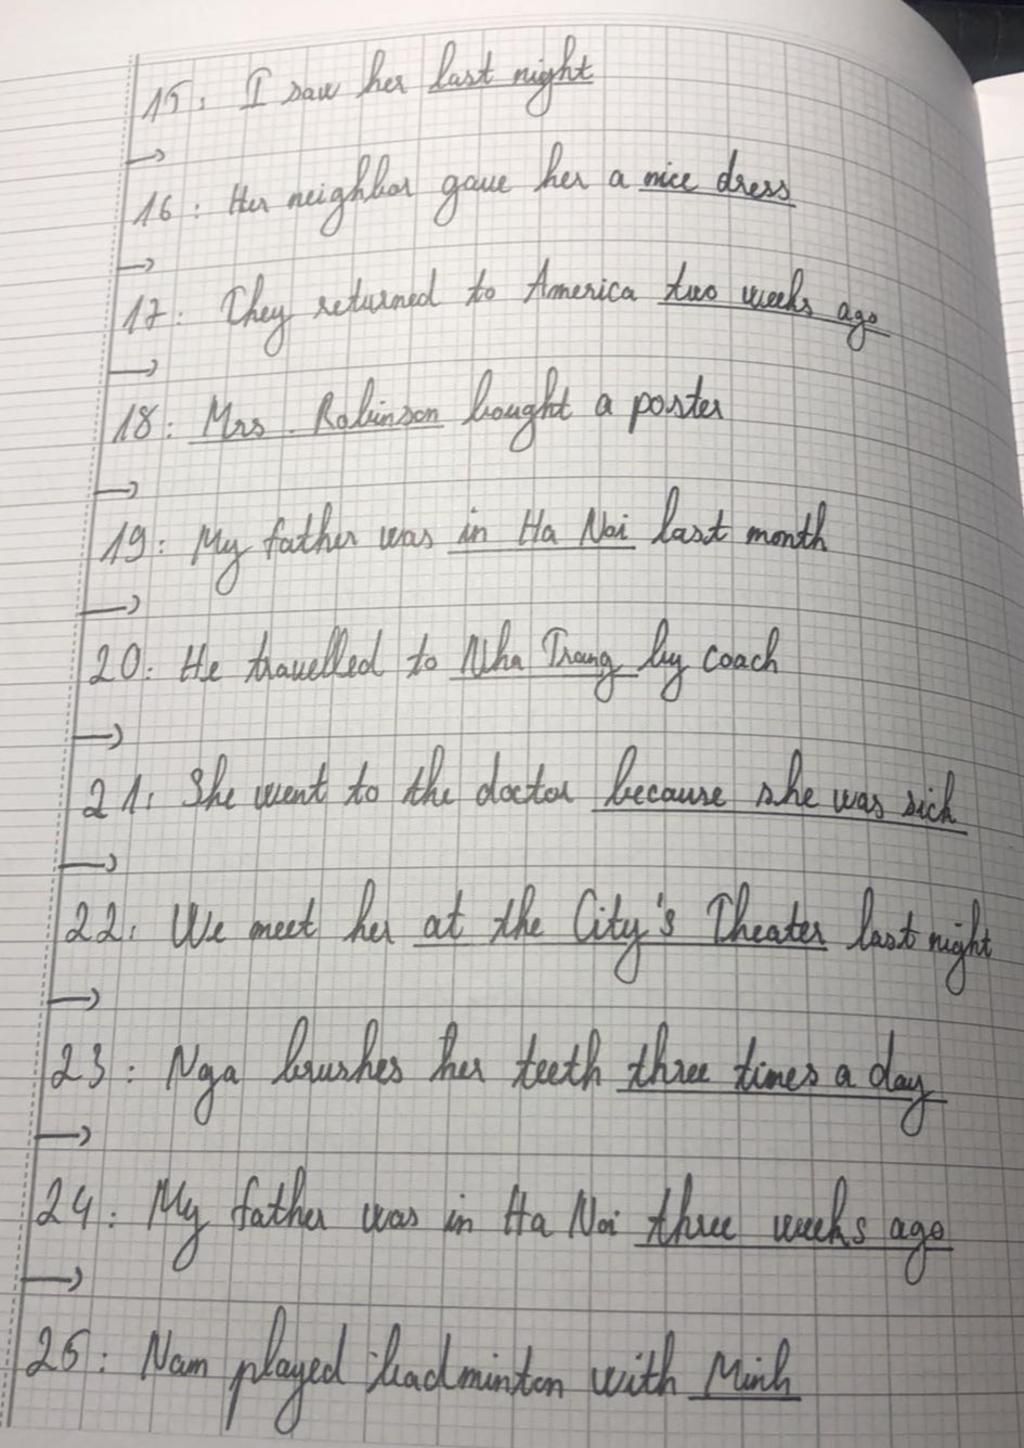 15: I saw her last night
→
16: Her neighbor gave her a nice dress
→
17: They returned to America two weeks ago
→
18: Mrs. Robinson bought a poster
→
19: My father was in Ha Noi last month
→
20: He travelled to Nha Trang by coach
→
21: She went to the doctor because she was sick
→
22: We meet her at the City's Theater last night
→
23: Nga brushes her teeth three times a day
→
24: My father was in Ha Noi three weeks ago
→
25: Nam played badminton with Minh